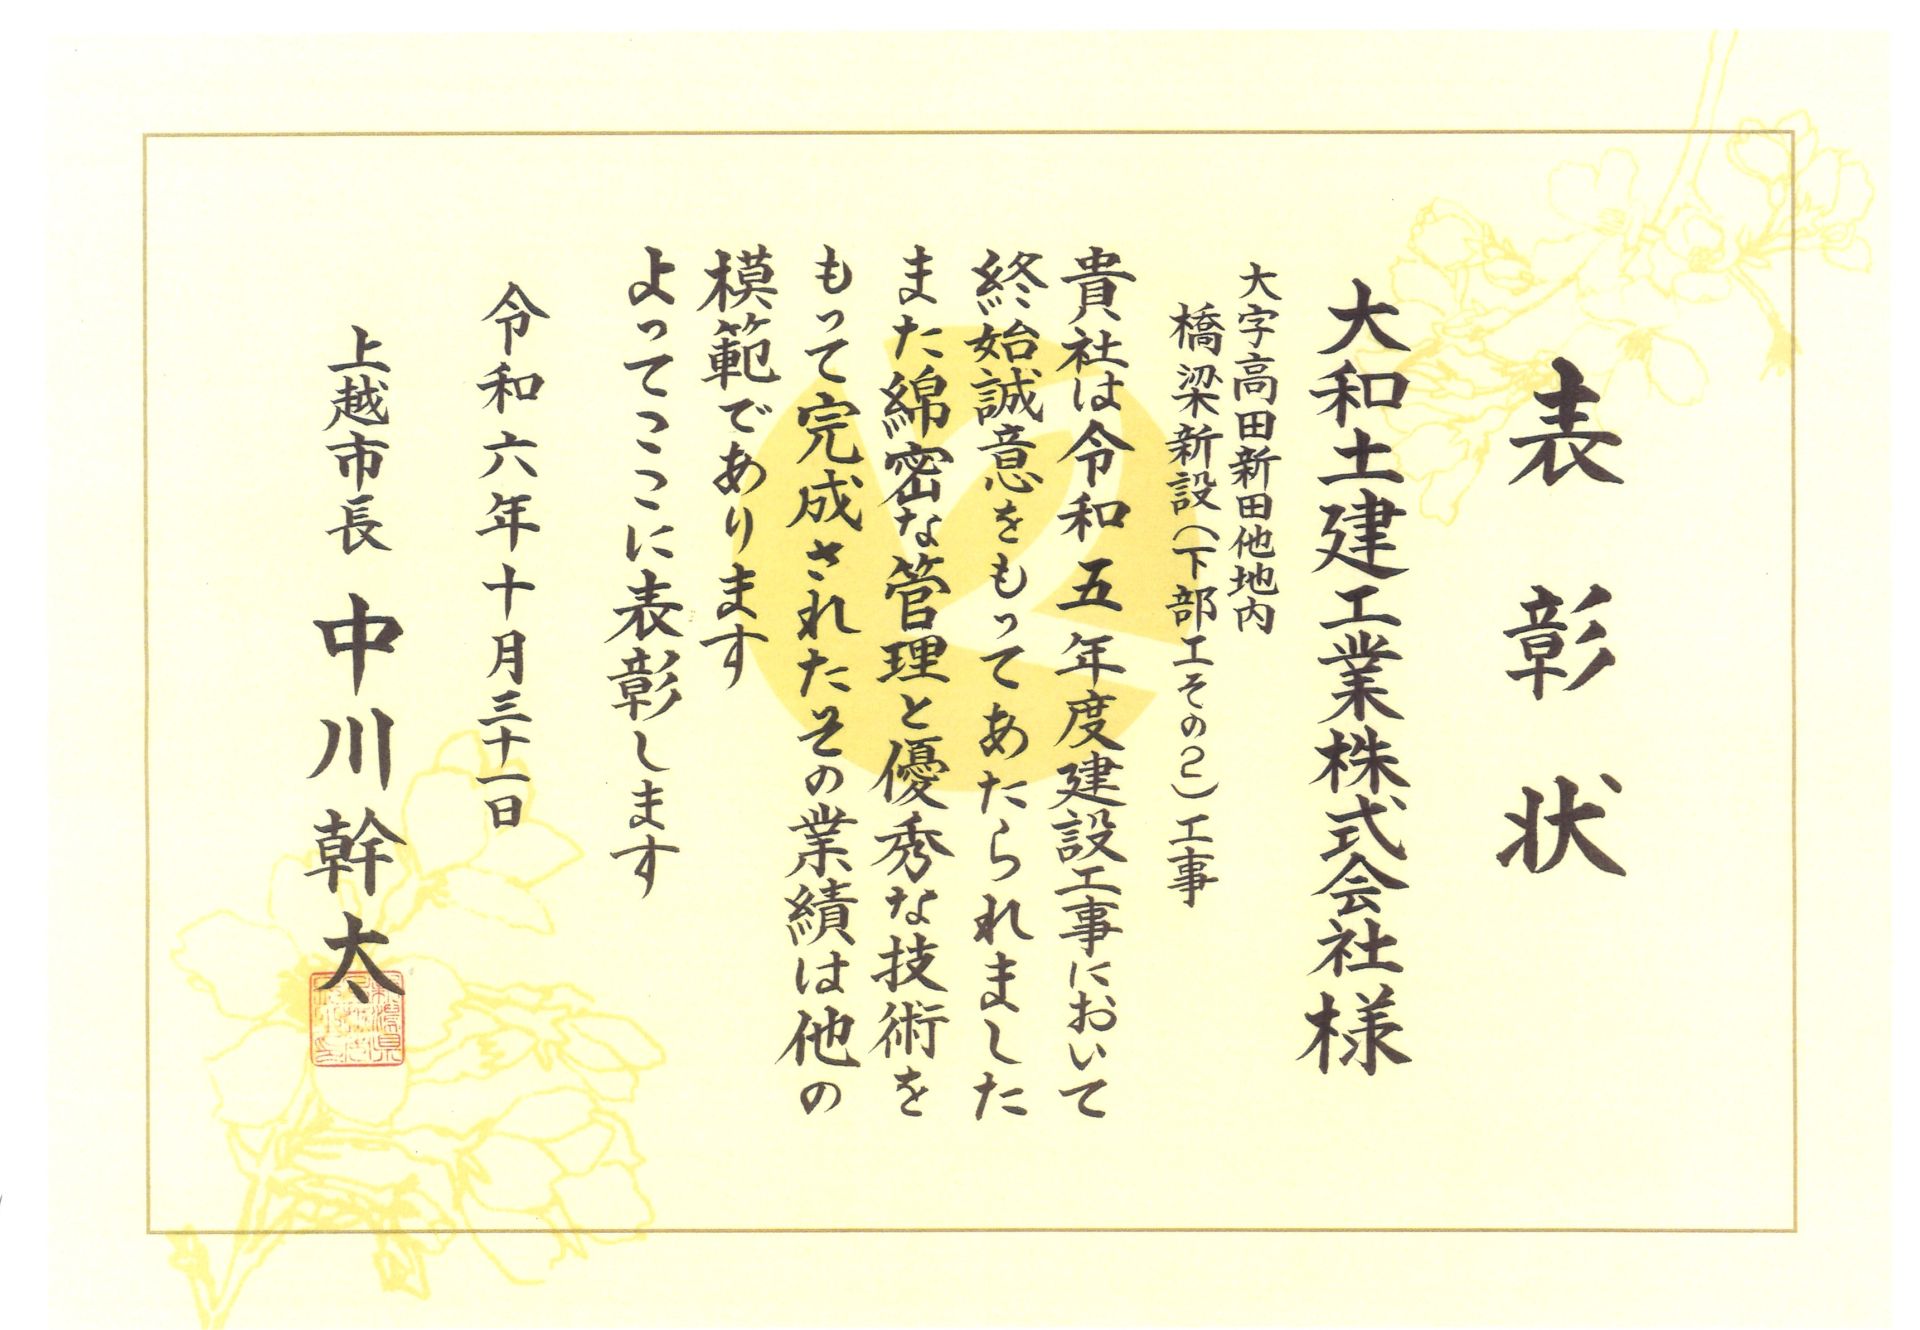 表彰状
大和土建工業株式会社様
大字高田新田他地内
橋梁新設(下部工その2)工事
貴社は令和五年度建設工事において
終始誠意をもってあたられました
また綿密な管理と優秀な技術を
もって完成されたその業績は他の
模範であります
よってここに表彰します
令和六年十月三十一日
上越市長 中川幹太